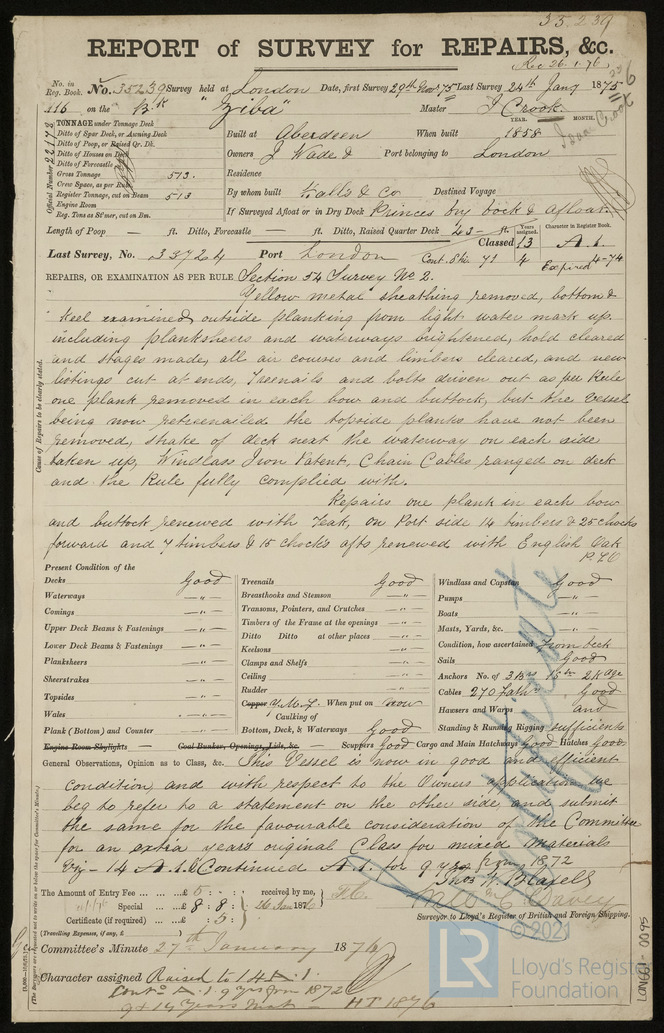 35.239
REPORT of SURVEY for REPAIRS, &c.
Rec 26.1.76
No. in Reg. Book. No. 35239 Survey held at London Date, first Survey 29th Novr 75 Last Survey 24th Jany 1876
116 on the Bk "Ziba" Master J Crook
Isaac Crook
Official Number 22178
TONNAGE under Tonnage Deck
Ditto of Spar Deck, or Awning Deck
Ditto of Poop, or Raised Qr. Dk.
Ditto of Houses on Deck
Ditto of Forecastle
Gross Tonnage 513.
Crew Space, as per Rule
Register Tonnage, cut on Beam 513
Engine Room
Reg. Tons as Stmer, cut on Bm.
YEAR. MONTH.
Built at Aberdeen When built 1858
Owners J Wade & Port belonging to London
Residence
By whom built Halls & Co Destined Voyage
If Surveyed Afloat or in Dry Dock Princes Dry Dock & Afloat.
Length of Poop — ft. Ditto, Forecastle — ft. Ditto, Raised Quarter Deck 43 - ft.
Years assigned. Character in Register Book.
Last Survey, No. 33724 Port London Classed 13 A.1.
Cont. 71 4 Expired 4-74
REPAIRS, OR EXAMINATION AS PER RULE Section 54 Survey No 2.
Cause of Repairs to be clearly stated.
Yellow metal sheathing removed, bottom &
keel examined, outside planking from light water mark up
including planksheers and waterways brightened, hold cleared
and stages made, all air courses and limbers cleared, and new
listings cut at ends, Treenails and bolts driven out as per Rule
one plank removed in each bow and buttock, but the vessel
being now retreenailed the topside planks have not been
removed, strake of deck next the waterway on each side
taken up, Windlass Iron Patent, Chain Cables ranged on deck
and the Rule fully complied with.
Repairs one plank in each bow
and buttock renewed with Teak, on Port side 14 timbers & 25 chocks
forward and 7 timbers & 15 chocks aft renewed with English Oak
P.T.O
Present Condition of the
Decks Good
Waterways — " —
Comings — " —
Upper Deck Beams & Fastenings — " —
Lower Deck Beams & Fastenings — " —
Planksheers — " —
Sheerstrakes — " —
Topsides — " —
Wales — " —
Plank (Bottom) and Counter — " —
Treenails Good
Breasthooks and Stemson — " —
Transoms, Pointers, and Crutches — " —
Timbers of the Frame at the openings — " —
Ditto Ditto at other places — " —
Keelsons — " —
Clamps and Shelfs — " —
Ceiling — " —
Rudder — " —
Copper Y.M. When put on now
Caulking of
Bottom, Deck, & Waterways Good
Windlass and Capstan Good
Pumps — " —
Boats — " —
Masts, Yards, &c. — " —
Condition, how ascertained from deck
Sails Good
Anchors No. of 3 Brs 1 Stm 2 Kedge
Cables 270 fath Good
Hawsers and Warps and
Standing & Running Rigging sufficient
Engine Room Skylights — Coal Bunker, Openings, Lids, &c. — Scuppers Good Cargo and Main Hatchways Good Hatches Good
General Observations, Opinion as to Class, &c. This Vessel is now in good and efficient
condition, and with respect to the Owners application we
beg to refer to a statement on the other side, and submit
the same for the favourable consideration of the Committee
for an extra years original Class for mixed materials
Viz — 14 A.1. & Continued A.1. for 9 yrs from 1872
The Amount of Entry Fee ... £ 5 : : received by me,
Special ... £ 8 : 8 : 26 Jan 1876
Certificate (if required) ... £ : 5 :
(Travelling Expenses, if any, £ )
Surveyor to Lloyd's Register of British and Foreign Shipping.
Committee's Minute 27th January 1876
Character assigned Raised to 14 A.1.
Contd A.1. 9 yrs from 1872
9 & 14 Years Mat — HT 1876
LR
© 2021
Lloyd's Register
Foundation
LON661-0095